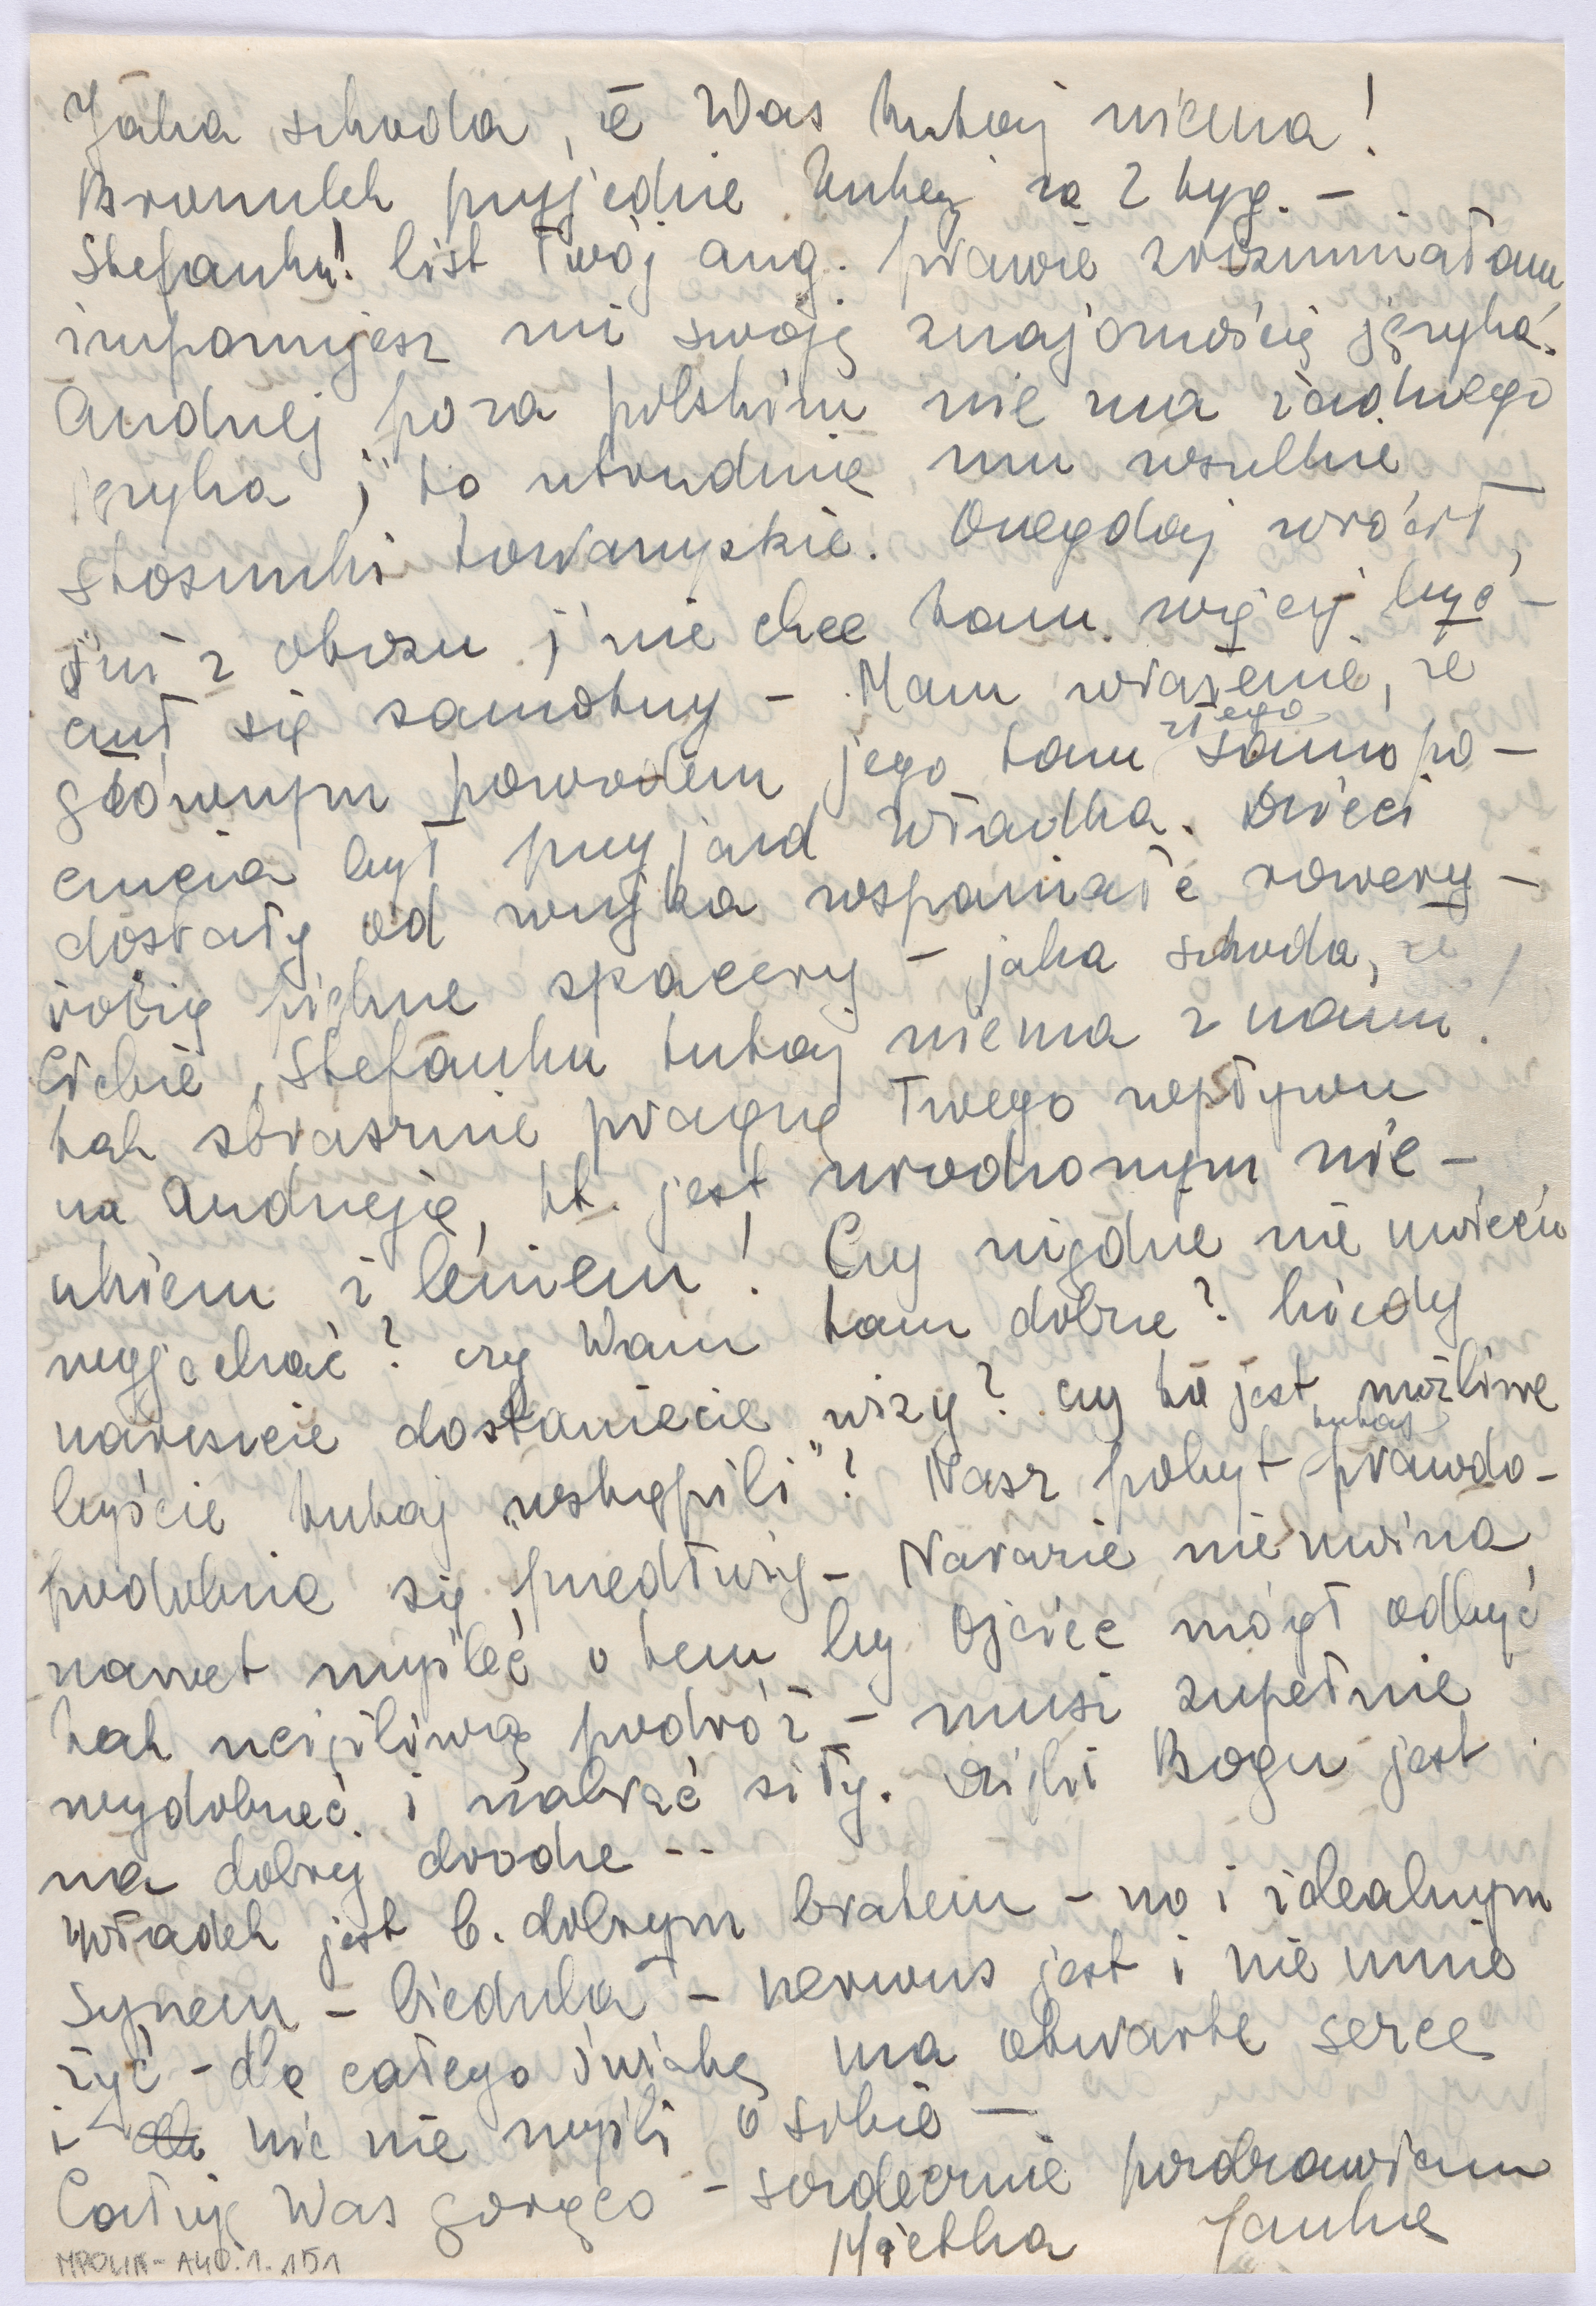 Jaka szkoda, że Was tutaj niema!
Bronulek przyjedzie tutaj za 2 tyg. –
Stefanku! list Twój ang. prawie zrozumiałam
imponujesz mi swoją znajomością języka.
Andrzej poza polskim nie ma żadnego
języka i to utrudnia mu wszelkie
stosunki towarzyskie. Onegdaj wrócił,
już z obozu i nie chce tam więcej być –
czuł się samotny – Mam wrażenie, że
głównym powodem jego tam złego samopo-
czucia był przyjazd Władka. Dzieci
dostały od wujka wspaniałe rowery –
robią piękne spacery – jaka szkoda, że
Ciebie, Stefanku tutaj niema z nami!
tak strasznie pragnę Twego wpływu
na Andrzeja, kt. jest urodzonym nie-
ukiem i leniem! Czy nigdzie nie możecie
wyjechać? czy Wam tam dobrze? kiedy
nareszcie dostaniecie wizy? czy to jest możliwe
byście tutaj "wstąpili"? Nasz pobyt tutaj prawdo-
podobnie się przedłuży – Narazie nie można
nawet myśleć o tem by Ojciec mógł odbyć
tak uciążliwą podróż – musi zupełnie
wydobrzeć i nabrać siły. Dzięki Bogu jest
na dobrej drodze --
Władek jest b. dobrym bratem – no i idealnym
synem – biedula – nerwus jest i nie umie
żyć – dla całego świata ma otwarte serce
i nic nie myśli o sobie –
Całuję Was gorąco – serdecznie pozdrawiam
Mietka Janka
MPOLIN-A40.1.151